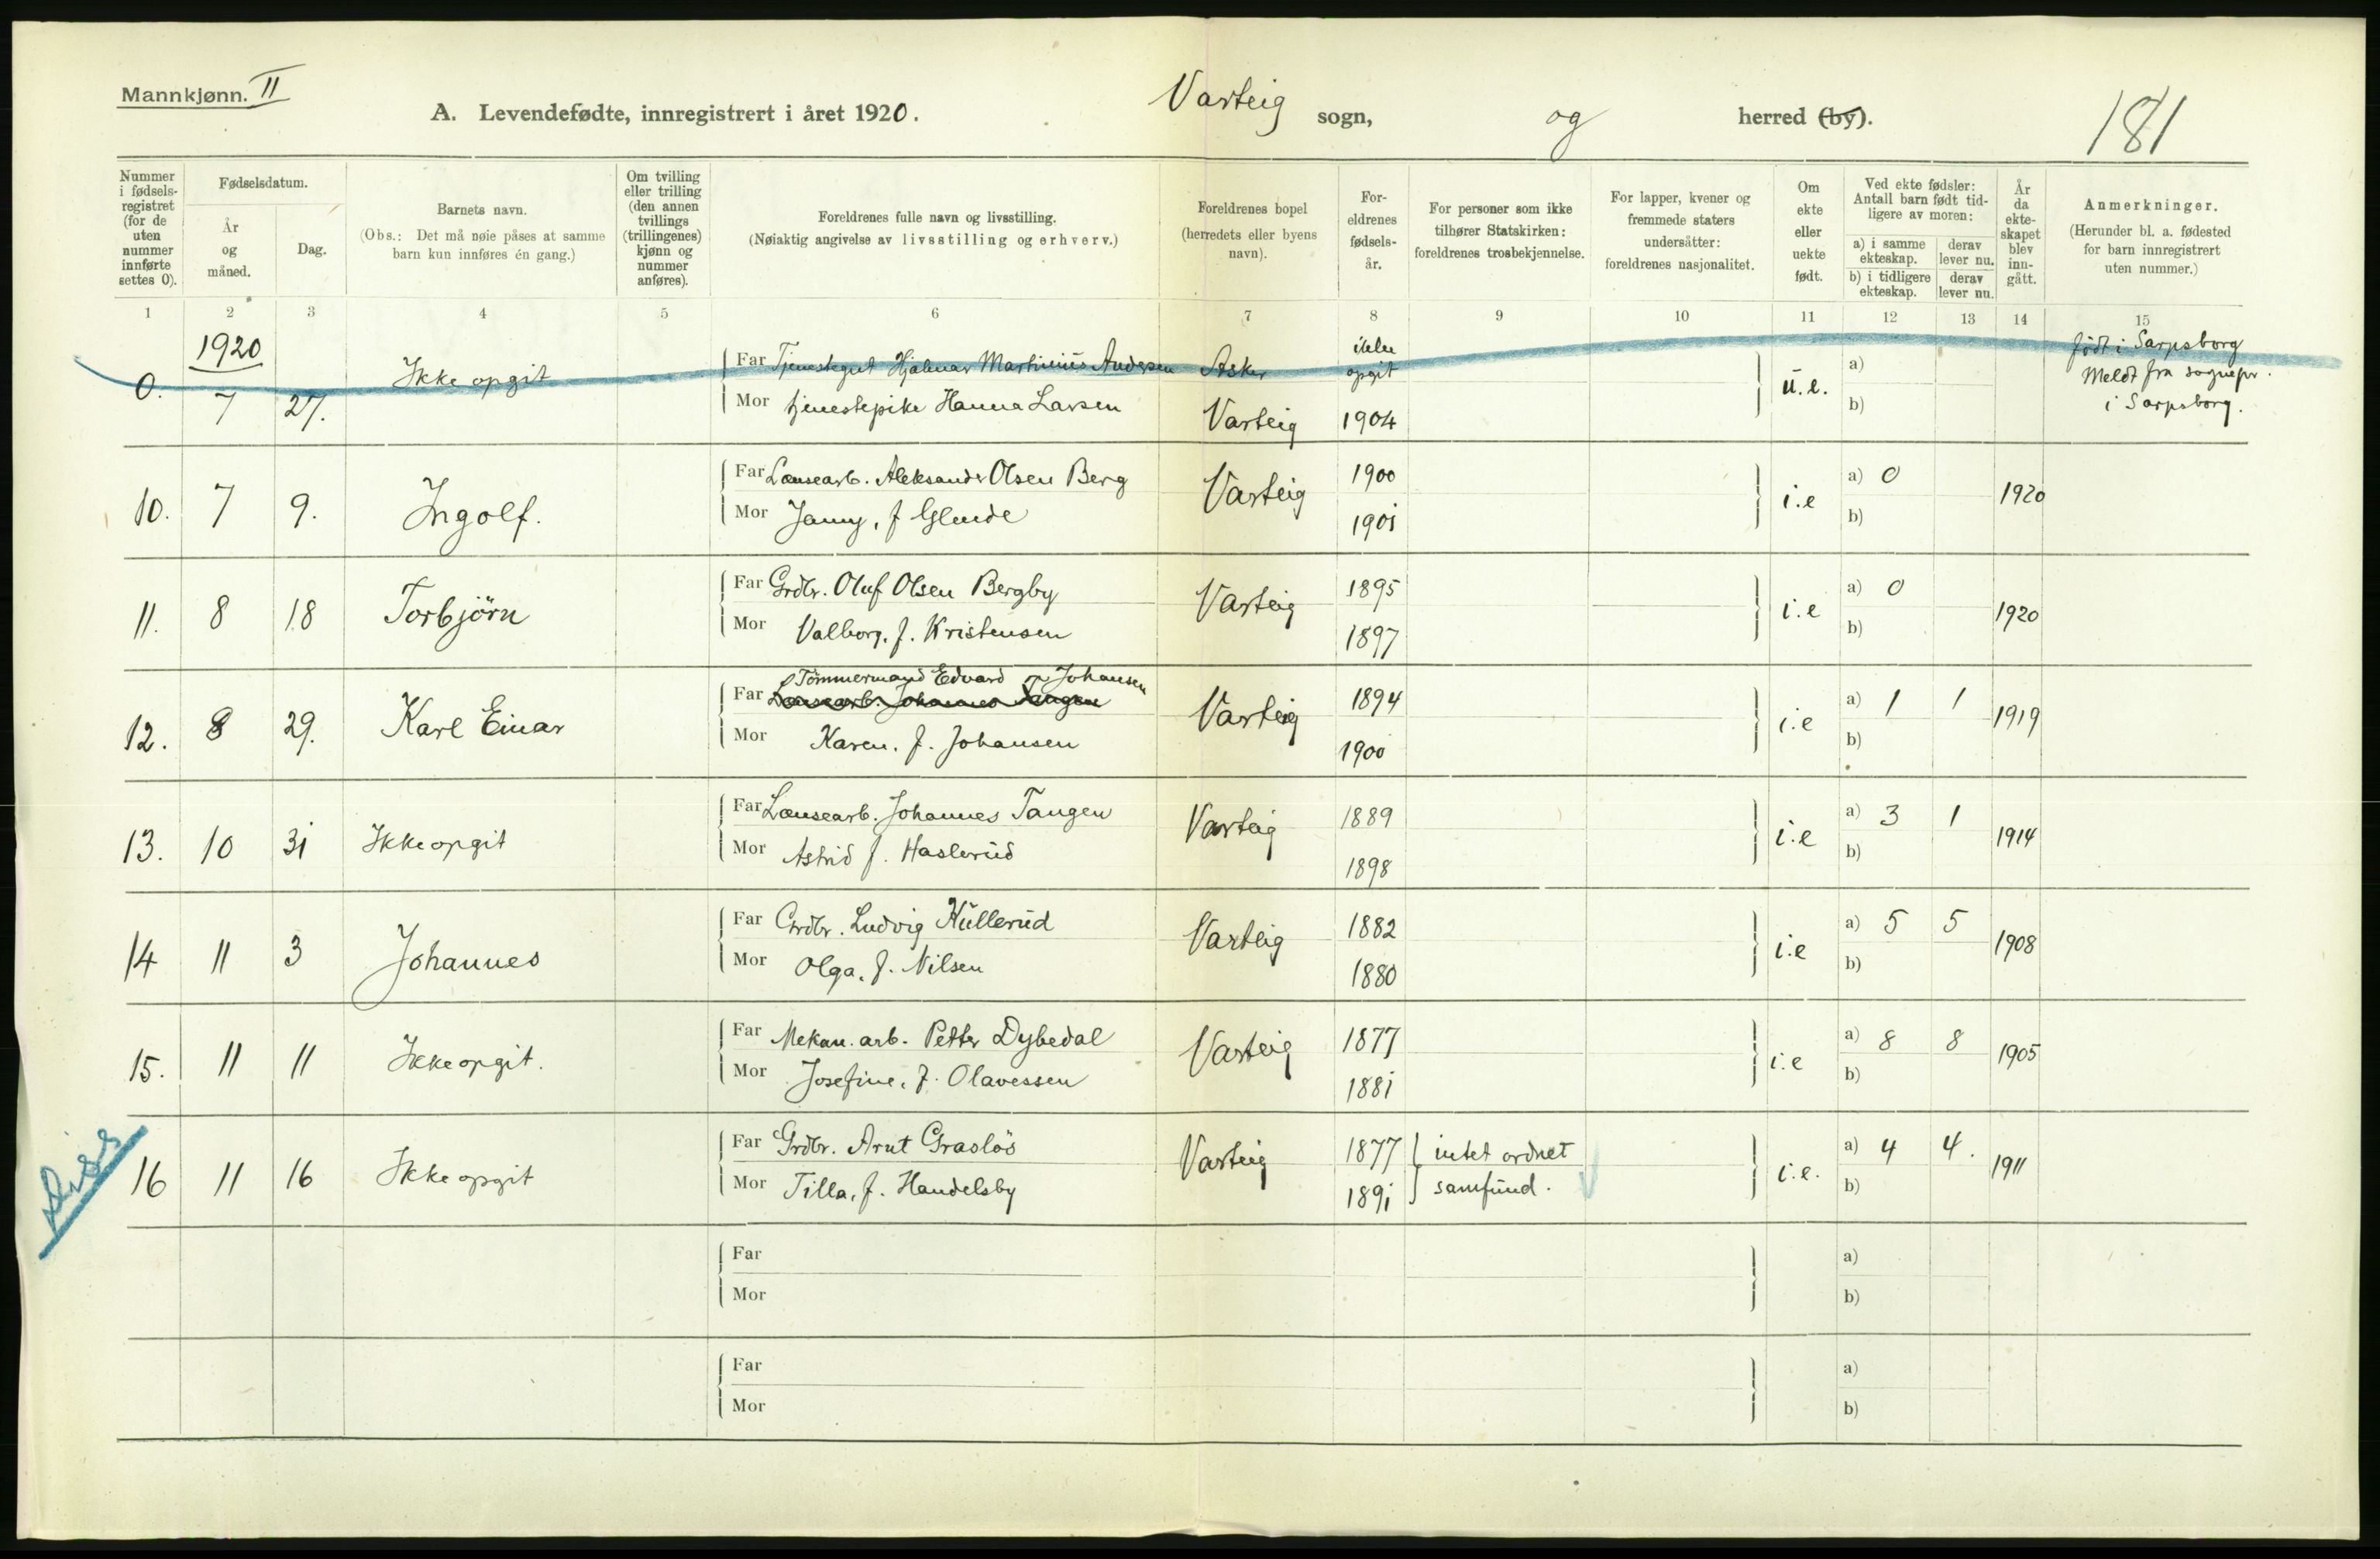 Mannkjønn. II
A. Levendefødte, innregistrert i året 1920. Varteig sogn, og herred (by). 181
Nummer i fødsels-registret (for de uten nummer innførte settes 0).
Fødselsdatum.
År og måned.
Dag.
Barnets navn.
(Obs.: Det må nøie påses at samme barn kun innføres én gang.)
Om tvilling eller trilling (den annen tvillings (trillingenes) kjønn og nummer anføres).
Foreldrenes fulle navn og livsstilling.
(Nøiaktig angivelse av livsstilling og erhverv.)
Foreldrenes bopel (herredets eller byens navn).
For-eldrenes fødsels-år.
For personer som ikke tilhører Statskirken: foreldrenes trosbekjennelse.
For lapper, kvener og fremmede staters undersåtter: foreldrenes nasjonalitet.
Om ekte eller uekte født.
Ved ekte fødsler: Antall barn født tid-ligere av moren:
a) i samme ekteskap.
derav lever nu.
b) i tidligere ekteskap.
derav lever nu.
År da ekte-skapet blev inn-gått.
Anmerkninger.
(Herunder bl. a. fødested for barn innregistrert uten nummer.)
1 2 3 4 5 6 7 8 9 10 11 12 13 14 15
1920
0. 7 27. Ikke opgit Far Tjenestegut Hjalmar Martinius Andersen Asker ikke opgit u.e. a) født i Sarpsborg
Meldt fra sognepr.
Mor tjenestepike Hanna Larsen Varteig 1904 b) i Sarpsborg.
10. 7 9. Ingolf. Far Lænsearb. Aleksander Olsen Berg Varteig 1900 i.e a) 0 1920
Mor Jenny, f Glende 1901 b)
11. 8 18 Torbjörn Far Grdbr. Oluf Olsen Bergby Varteig 1895 i.e a) 0 1920
Mor Valborg, f. Kristensen 1897 b)
Tömmermand Edvard Johansen
12. 8 29. Karl Einar Far Lænsearb. Johannes Tangen Varteig 1894 i.e a) 1 1 1919
Mor Karen, f. Johansen 1900 b)
13. 10 31 Ikke opgit Far Lænsearb. Johannes Tangen Varteig 1889 i.e a) 3 1 1914
Mor Astrid f. Haslerud 1898 b)
14 11 3 Johannes Far Grdbr. Ludvig Kullerud Varteig 1882 i.e a) 5 5 1908
Mor Olga, f. Nilsen 1880 b)
15. 11 11 Ikke opgit. Far Mekan. arb. Petter Dybedal Varteig 1877 i.e a) 8 8 1905
Mor Josefine, f. Olavessen 1881 b)
Diss
16 11 16 Ikke opgit Far Grdbr. Arnt Graslös Varteig 1877 intet ordnet i.e. a) 4 4. 1911
Mor Tilla, f. Handelsby 1891 samfund. b)
Far a)
Mor b)
Far a)
Mor b)